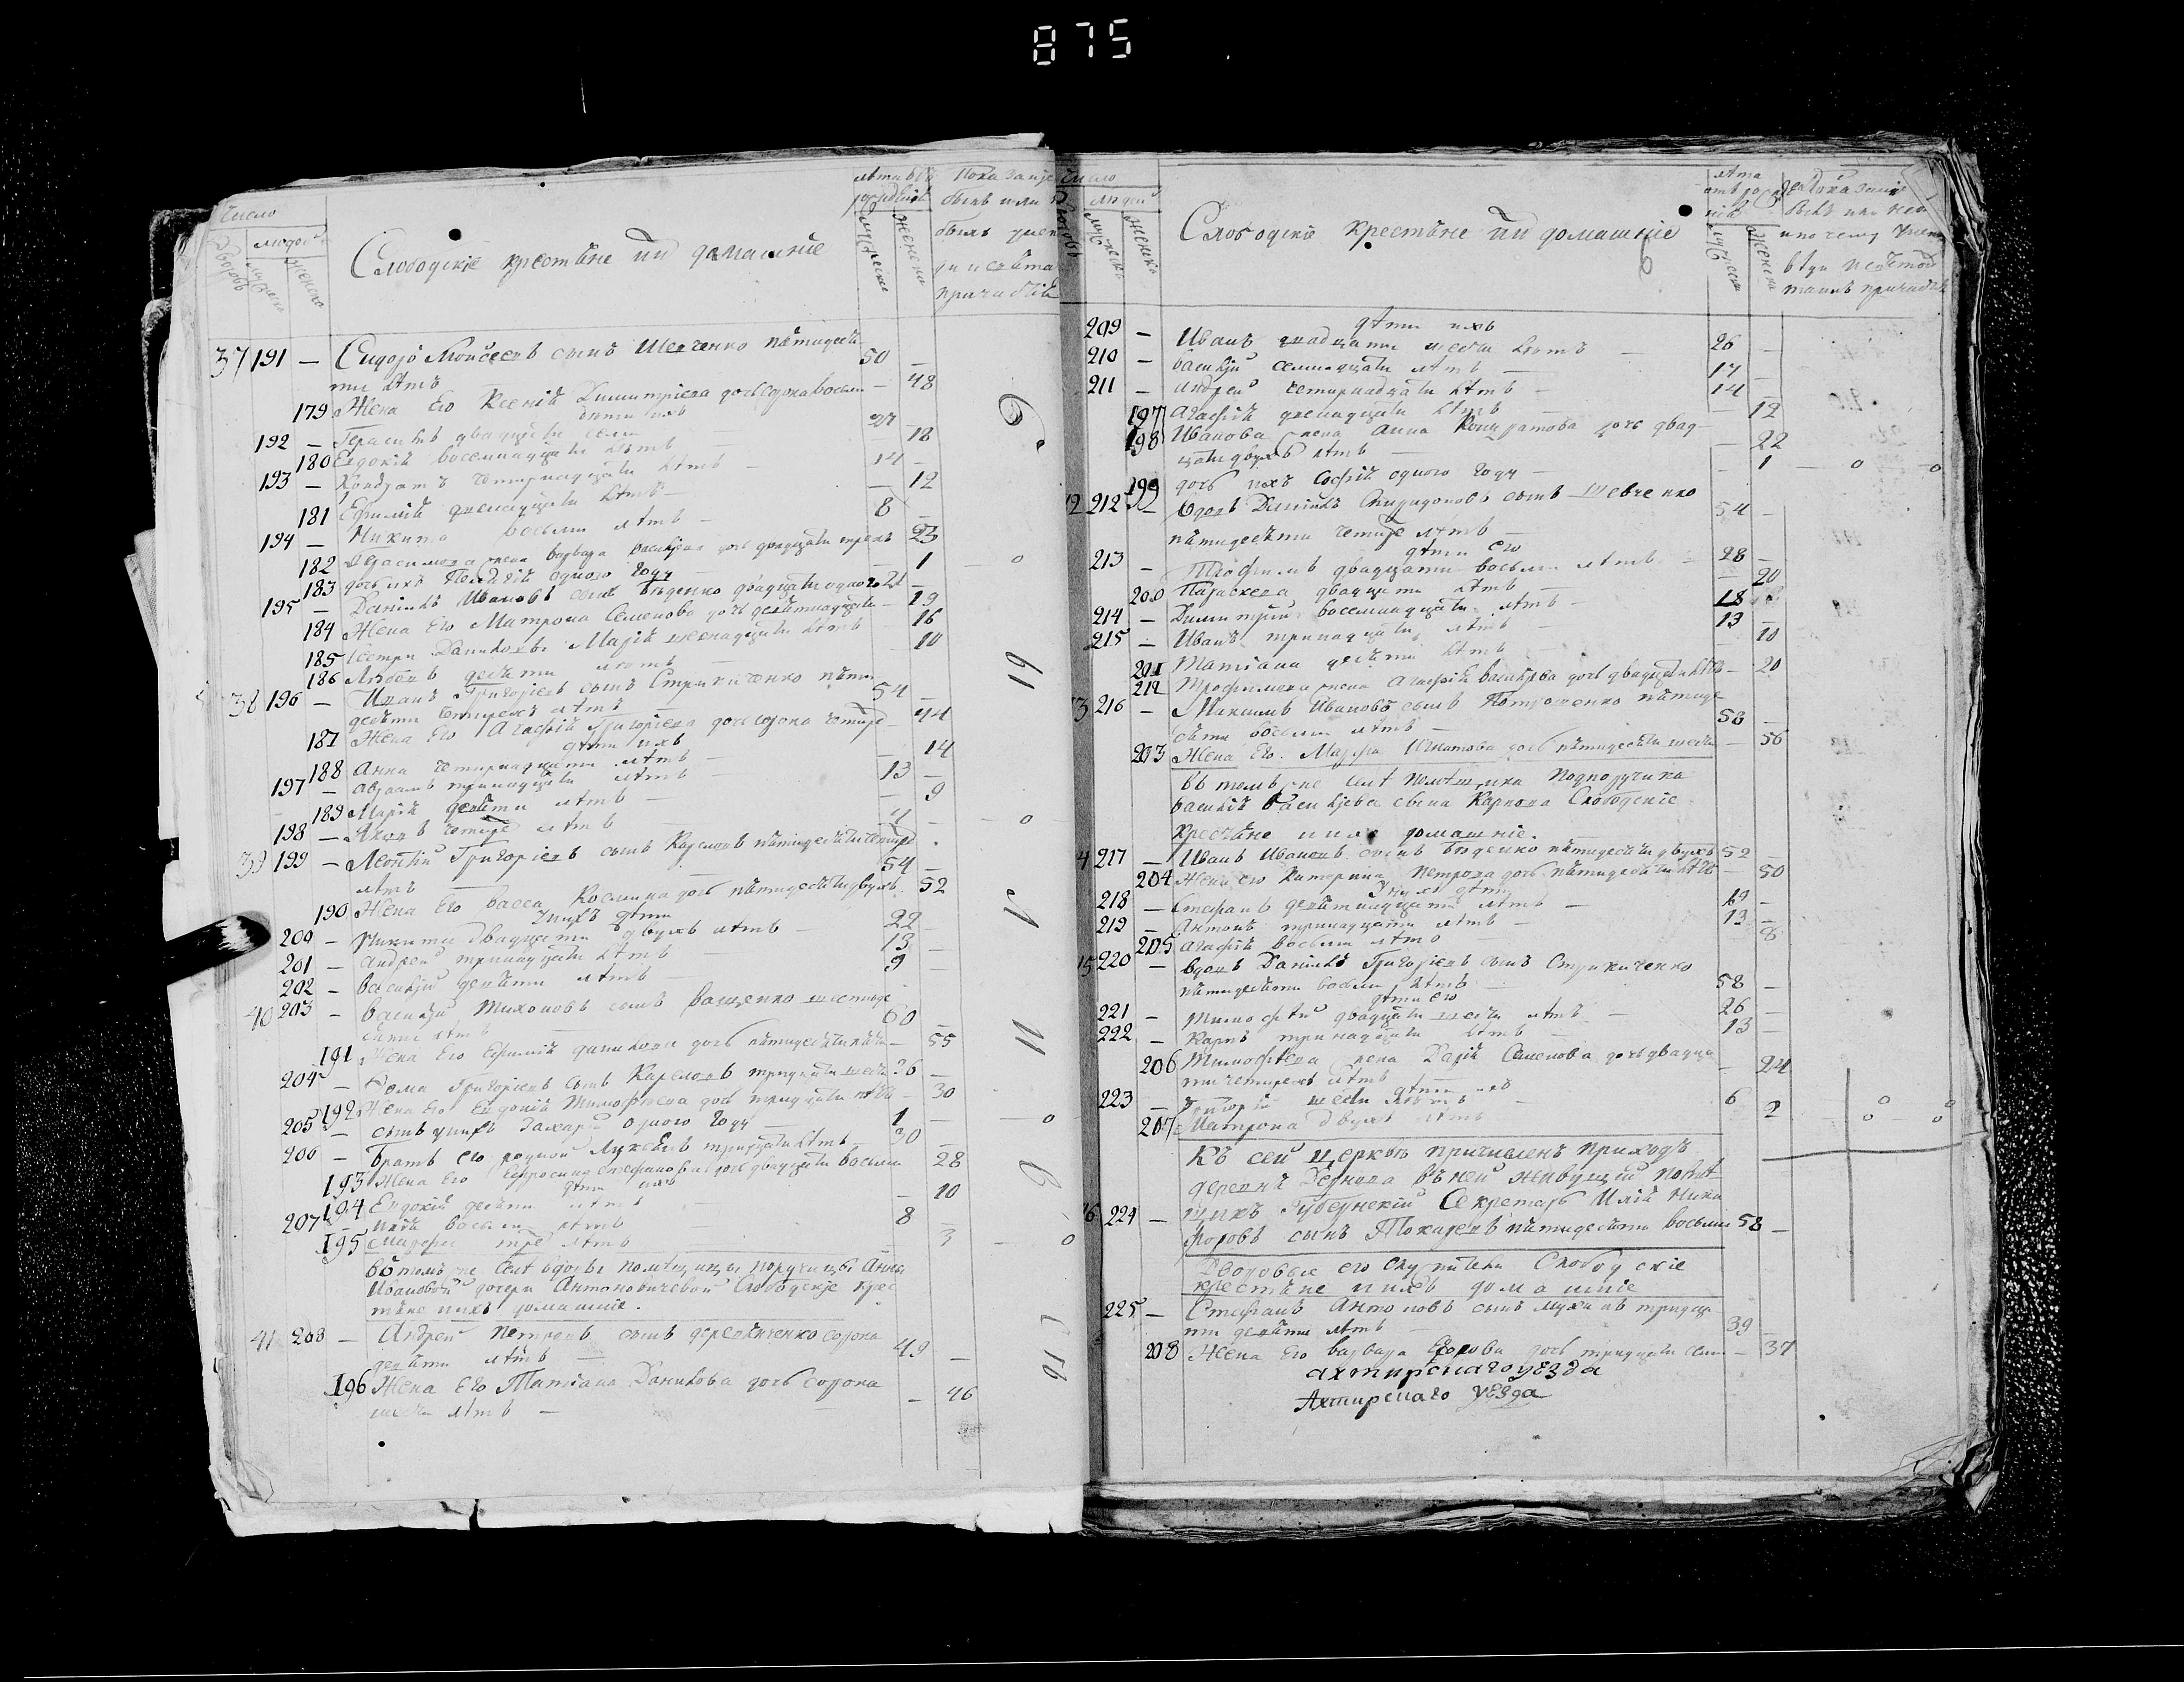 875
число
дворовъ
людей
мужеска
женска
Слободскіе крестяне ий домашніе
лѣта отъ рожденія
мужеска
женска
Показаніе
былъ или
37 191 — Сидоръ Моисеевъ сынъ Шевченко пятидесѧ 50 —
ти лѣтъ
179 Жена его Ксенія Димитріева дочь сорока восьми — 48
дѣти ихъ
192 — Герасимъ двадцати семи 27
180 Евдокія восемнадцати лѣтъ 18
193 — Кондратъ четирнадцати лѣтъ — 14 —
181 Ефимія двенадцати лѣтъ — — 12
194 — Никита восьми лѣтъ — 8 —
182 Герасимова жена варвара василіева дочь двадцати трехъ 23
183 дочь ихъ Пелагія одного году — 1 — о
195 — Даніилъ Ивановъ сынъ Бѣденко двадцати одного 21 —
184 Жена его Матрона Семенова дочь девятнадцати — 19
185 Сестри Даниловы Марія шеснадцати лѣтъ — 16
186 Любовъ десяти лѣтъ — 10
38 196 — Иванъ Григоріевъ сынъ Стрижиченко пяти 54 —
десяти четирехъ лѣтъ
187 Жена его Агафія Григоріева дочь сорока четире — 44
дѣти ихъ
188 Анна четирнадцати лѣтъ — — 14
197 — Авраамъ тринадцати лѣтъ — 13 —
189 Марія девяти лѣтъ — — 9
198 — Яковъ четире лѣтъ 4 — о
39 199 — Леонтій Григоріевъ сынъ Карповъ пятидесяти четире
лѣтъ — 54 —
190 Жена его васса Космина дочь пятидесяти двухъ 52
У нихъ дѣти
200 — Никита двадцати двухъ лѣтъ — 22 —
201 — андрей тринадцати лѣтъ — 13 —
202 — василій девяти лѣтъ 9
40 203 — василій Тихоновъ сынъ ващенко шестиде 60 —
сяти лѣтъ
191 Жена его Ефимія данилова дочь пятидесяти пяти — 55
204 — Фома Григоріевъ сынъ Карповъ тридцати шести 36 —
192 Жена его Евдокія Тимофеева дочь тридцати лѣтъ — 30
205 — сынъ у нихъ Захарій одного году — 1 — о
206 — Братъ его родной Лукіянъ тридцати лѣтъ 30 —
193 Жена его Ефросинія Стефанова дочь двадцати восьми 28
дѣти ихъ
194 Евдокія десяти лѣтъ — 10
207 — Илія восьми лѣтъ 8 —
195 трe лѣтъ 3 — о
въ томъ же селѣ вдовы помѣщицы порутчицы Анны
Ивановой дочери Антоновичевой Слободскіе крес
тяне ихъ домашніе.
41 208 — Андрей Петровъ сынъ деревянченко сорока
девяти лѣтъ — 49 —
196 Жена его Татіана Данилова дочь сорока
шести лѣтъ — — 46
число
людей
мужеска
женска
Слободскіе крестяне ий домашніе
6
лѣта
дѣти ихъ
209 — Иванъ двадцати шести лѣтъ — 26 —
210 — василій семнадцати лѣтъ — 17 —
211 — андрей четирнадцати лѣтъ — 14 —
197 агафія двенадцати лѣтъ — 12
198 Иванова жена Анна Кондратова дочь двад-
цати двухъ лѣтъ — — 22
199 дочь ихъ Софія одного году — — 1 — о о
212 — вдовъ Даніилъ Спиридоновъ сынъ Шевченко
пятидесяти четире лѣтъ — 54 —
дѣти его
213 — Трофимъ двадцати восьми лѣтъ — 28 —
200 Параскева двадцати лѣтъ — — 20
214 — Димитрій восемнадцати лѣтъ — 18
215 — Иванъ тринадцати лѣтъ — 13 —
201 Татіана десяти лѣтъ — 10
Трофимова жена Агафія василіева дочь двадцати лѣтъ — 20
216 — Максимъ Ивановъ сынъ Потрошенко пятиде
сяти восьми лѣтъ — 58 —
203 Жена его Марфа Игнатова дочь пятидесяти шести — 56
въ томъ же селѣ помѣщика подпоручика
василія василіева сына Карпова Слободскіе
крестяне и ихъ домашніе.
217 — Иванъ Ивановъ сынъ Бѣденко пятидесяти двухъ 52
204 Жена его Катерина Петрова дочь пятидесяти лѣтъ — 50
У нихъ дѣти
218 — Стефанъ девятнадцати лѣтъ — 19 —
219 — Антонъ тринадцати лѣтъ — 13 —
205 агафія восьми лѣтъ 8
220 — вдовъ Даніилъ Григоріевъ сынъ Стрижиченко
пятидесяти восьми лѣтъ — 58 —
дѣти его
221 — Тимофей двадцати шести лѣтъ — 26 —
222 — Карпъ тринадцати лѣтъ — 13 —
206 Тимофеева жена Дарія Семенова дочь двадца
ти четирехъ лѣтъ — 24
дѣти ихъ
223 — Григорій шести лѣтъ — 6 о о
207 Матрона двухъ лѣтъ 2 о о
Къ сей церквѣ причисленъ приходъ
деревня Дернова въ ней живущій помѣ-
224 — щикъ Губернскій Секретарь Илія Ники
форовъ сынъ Токаревъ пятидесяти восьми 58 —
Дворовые его служители Слободскіе
крестяне и ихъ домашніе
225 — Стефанъ Антоновъ сынъ тридца
ти девяти лѣтъ — 39 —
208 Жена его варвара Егорова дочь тридцати семи — 37
ахтирскаго уезда
Ахтирскаго уезда